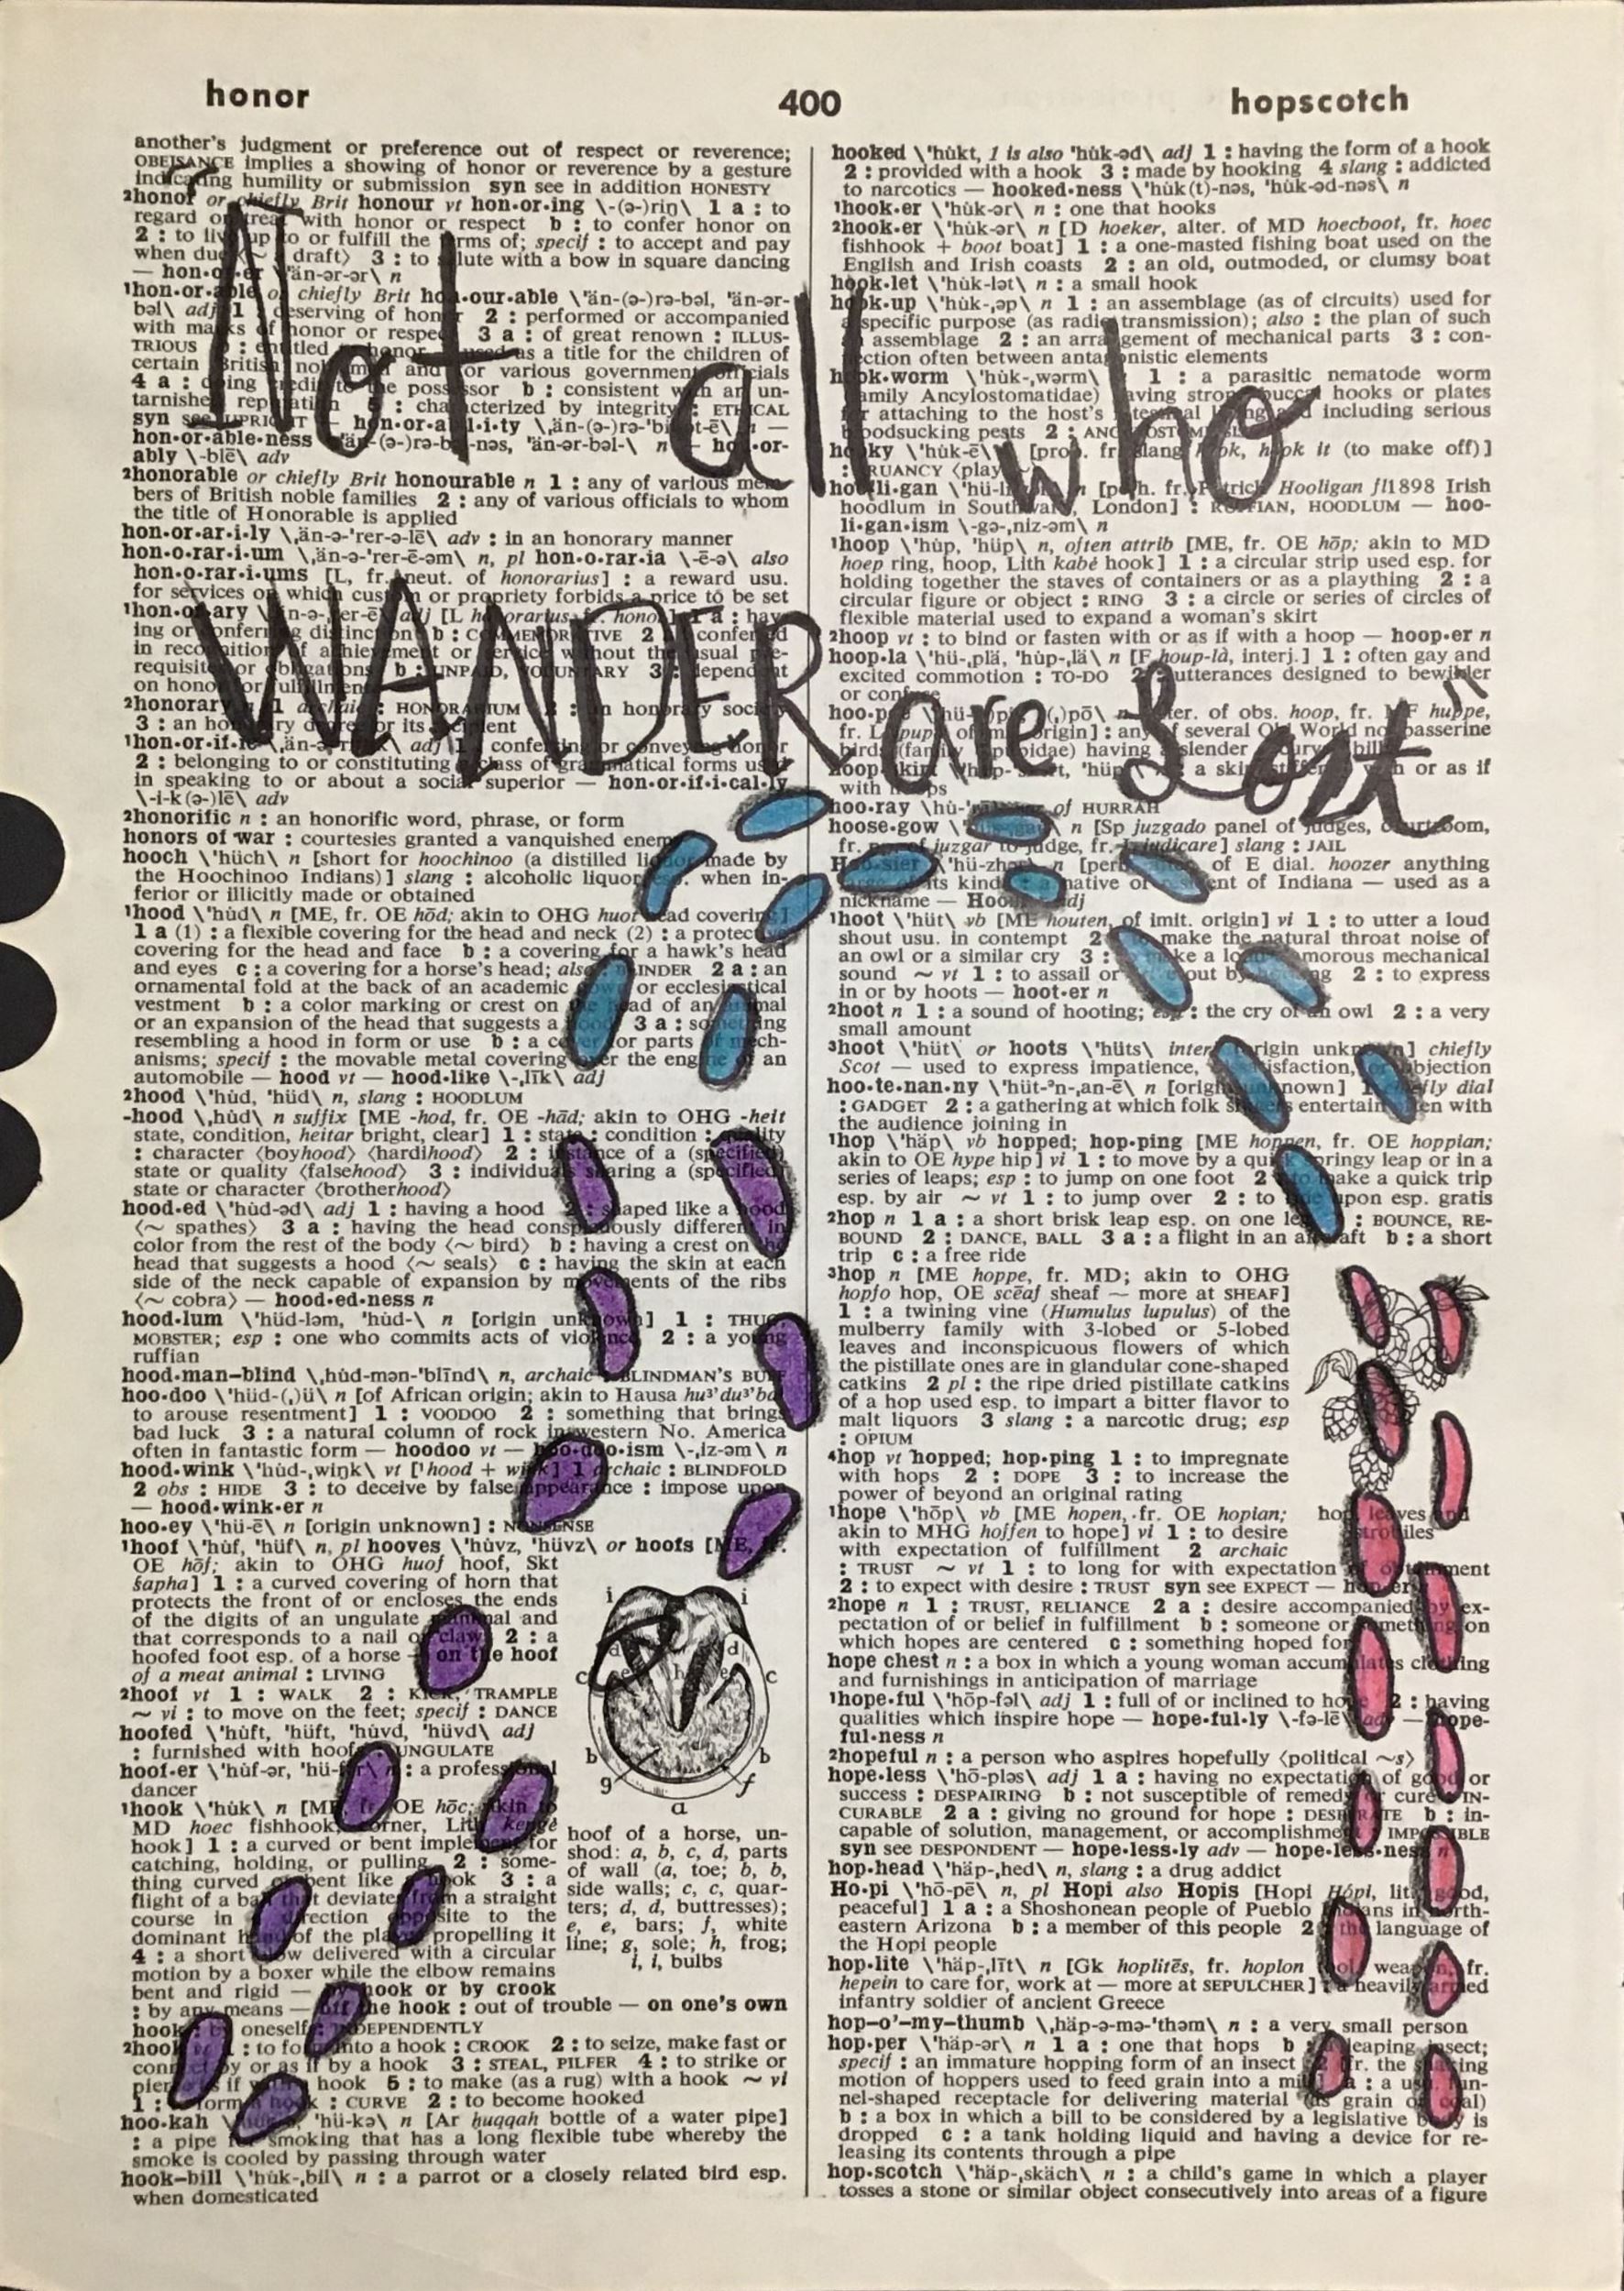 honor 400 hopscotch
"Not all who
WANDER are Lost"
another's judgment or preference out of respect or reverence;
OBEISANCE implies a showing of honor or reverence by a gesture
indicating humility or submission syn see in addition HONESTY
²honor or chiefly Brit honour vt hon·or·ing \-(ə-)riŋ\ 1 a : to
regard or treat with honor or respect b : to confer honor on
2 : to live up to or fulfill the terms of; specif : to accept and pay
when due draft⟩ 3 : to salute with a bow in square dancing
— hon·or·er \'än-ər-ər\ n
¹hon·or·able or chiefly Brit hon·our·able \'än-(ə-)rə-bəl, 'än-ər-
bəl\ adj 1 : deserving of honor 2 : performed or accompanied
with marks of honor or respect 3 a : of great renown : ILLUS-
TRIOUS b : entitled to honor — used as a title for the children of
certain British noblemen and for various government officials
4 a : doing credit to the possessor b : consistent with an un-
tarnished reputation 5 : characterized by integrity : ETHICAL
syn see UPRIGHT — hon·or·abil·i·ty \,än-(ə-)rə-'bil-ət-ē\ n —
hon·or·able·ness \'än-(ə-)rə-bəl-nəs, 'än-ər-bəl-\ n — hon·or-
ably \-blē\ adv
²honorable or chiefly Brit honourable n 1 : any of various mem-
bers of British noble families 2 : any of various officials to whom
the title of Honorable is applied
hon·or·ar·i·ly \,än-ə-'rer-ə-lē\ adv : in an honorary manner
hon·o·rar·i·um \,än-ə-'rer-ē-əm\ n, pl hon·o·rar·ia \-ē-ə\ also
hon·o·rar·i·ums [L, fr. neut. of honorarius] : a reward usu.
for services on which custom or propriety forbids a price to be set
¹hon·or·ary \'än-ə-,rer-ē\ adj [L honorarius, fr. honor] 1 a : hav-
ing or conferring distinction b : COMMEMORATIVE 2 : conferred
in recognition of achievement or service without the usual pre-
requisites or obligations b : UNPAID, VOLUNTARY 3 : dependent
on honor for fulfillment
²honorary n 1 archaic : HONORARIUM 2 : an honorary society
3 : an honorary degree or its recipient
¹hon·or·if·ic \,än-ə-'rif-ik\ adj 1 : conferring or conveying honor
2 : belonging to or constituting a class of grammatical forms used
in speaking to or about a social superior — hon·or·if·i·cal·ly
\-i-k(ə-)lē\ adv
²honorific n : an honorific word, phrase, or form
honors of war : courtesies granted a vanquished enemy
hooch \'hüch\ n [short for hoochinoo (a distilled liquor made by
the Hoochinoo Indians)] slang : alcoholic liquor esp. when in-
ferior or illicitly made or obtained
¹hood \'hu̇d\ n [ME, fr. OE hōd; akin to OHG huot head covering]
1 a (1) : a flexible covering for the head and neck (2) : a protective
covering for the head and face b : a covering for a hawk's head
and eyes c : a covering for a horse's head; also : BLINDER 2 a : an
ornamental fold at the back of an academic gown or ecclesiastical
vestment b : a color marking or crest on the head of an animal
or an expansion of the head that suggests a hood 3 a : something
resembling a hood in form or use b : a cover for parts of mech-
anisms; specif : the movable metal covering over the engine of an
automobile — hood vt — hood·like \-,līk\ adj
²hood \'hu̇d, 'hüd\ n, slang : HOODLUM
-hood \,hu̇d\ n suffix [ME -hod, fr. OE -hād; akin to OHG -heit
state, condition, heitar bright, clear] 1 : state : condition : quality
: character ⟨boyhood⟩ ⟨hardihood⟩ 2 : instance of a (specified)
state or quality ⟨falsehood⟩ 3 : individuals sharing a (specified)
state or character ⟨brotherhood⟩
hood·ed \'hu̇d-əd\ adj 1 : having a hood 2 : shaped like a hood
⟨~ spathes⟩ 3 a : having the head conspicuously different in
color from the rest of the body ⟨~ bird⟩ b : having a crest on the
head that suggests a hood ⟨~ seals⟩ c : having the skin at each
side of the neck capable of expansion by movements of the ribs
⟨~ cobra⟩ — hood·ed·ness n
hood·lum \'hüd-ləm, 'hu̇d-\ n [origin unknown] 1 : THUG,
MOBSTER; esp : one who commits acts of violence 2 : a young
ruffian
hood·man–blind \,hu̇d-mən-'blīnd\ n, archaic : BLINDMAN'S BUFF
hoo·doo \'hüd-(,)ü\ n [of African origin; akin to Hausa hu³'du³'ba
to arouse resentment] 1 : VOODOO 2 : something that brings
bad luck 3 : a natural column of rock in western No. America
often in fantastic form — hoodoo vt — hoo·doo·ism \-,iz-əm\ n
hood·wink \'hu̇d-,wiŋk\ vt [¹hood + wink] 1 archaic : BLINDFOLD
2 obs : HIDE 3 : to deceive by false appearance : impose upon
— hood·wink·er n
hoo·ey \'hü-ē\ n [origin unknown] : NONSENSE
¹hoof \'hu̇f, 'hüf\ n, pl hooves \'hu̇vz, 'hüvz\ or hoofs [ME, fr.
OE hōf; akin to OHG huof hoof, Skt
śapha] 1 : a curved covering of horn that
protects the front of or encloses the ends
of the digits of an ungulate mammal and
that corresponds to a nail or claw 2 : a
hoofed foot esp. of a horse — on the hoof
of a meat animal : LIVING
²hoof vt 1 : WALK 2 : KICK, TRAMPLE
~ vi : to move on the feet; specif : DANCE
hoofed \'hu̇ft, 'hüft, 'hu̇vd, 'hüvd\ adj
: furnished with hoofs : UNGULATE
hoof·er \'hu̇f-ər, 'hü-fər\ n : a professional
dancer
¹hook \'hu̇k\ n [ME, fr. OE hōc; akin to
MD hoec fishhook, corner, Lith kengė
hook] 1 : a curved or bent implement for
catching, holding, or pulling 2 : some-
thing curved or bent like a hook 3 : a
flight of a ball that deviates from a straight
course in a direction opposite to the
dominant hand of the player propelling it
4 : a short blow delivered with a circular
motion by a boxer while the elbow remains
bent and rigid — by hook or by crook
: by any means — off the hook : out of trouble — on one's own
hook : by oneself : INDEPENDENTLY
²hook vt 1 : to form into a hook : CROOK 2 : to seize, make fast or
connect by or as if by a hook 3 : STEAL, PILFER 4 : to strike or
pierce as if with a hook 5 : to make (as a rug) with a hook ~ vi
1 : to form a hook : CURVE 2 : to become hooked
hoo·kah \'hu̇k-ə, 'hü-kə\ n [Ar ḥuqqah bottle of a water pipe]
: a pipe for smoking that has a long flexible tube whereby the
smoke is cooled by passing through water
hook–bill \'hu̇k-,bil\ n : a parrot or a closely related bird esp.
when domesticated
i i
d d
c e h e c
b b
g f
a
hoof of a horse, un-
shod: a, b, c, d, parts
of wall (a, toe; b, b,
side walls; c, c, quar-
ters; d, d, buttresses);
e, e, bars; f, white
line; g, sole; h, frog;
i, i, bulbs
hooked \'hu̇kt, 1 is also 'hu̇k-əd\ adj 1 : having the form of a hook
2 : provided with a hook 3 : made by hooking 4 slang : addicted
to narcotics — hooked·ness \'hu̇k(t)-nəs, 'hu̇k-əd-nəs\ n
¹hook·er \'hu̇k-ər\ n : one that hooks
²hook·er \'hu̇k-ər\ n [D hoeker, alter. of MD hoecboot, fr. hoec
fishhook + boot boat] 1 : a one-masted fishing boat used on the
English and Irish coasts 2 : an old, outmoded, or clumsy boat
hook·let \'hu̇k-lət\ n : a small hook
hook·up \'hu̇k-,əp\ n 1 : an assemblage (as of circuits) used for
a specific purpose (as radio transmission); also : the plan of such
an assemblage 2 : an arrangement of mechanical parts 3 : con-
nection often between antagonistic elements
hook·worm \'hu̇k-,wərm\ n 1 : a parasitic nematode worm
(family Ancylostomatidae) having strong buccal hooks or plates
for attaching to the host's intestinal lining and including serious
bloodsucking pests 2 : ANCYLOSTOMIASIS
hooky \'hu̇k-ē\ n [prob. fr. slang hook, hook it (to make off)]
: TRUANCY ⟨play ~⟩
hoo·li·gan \'hü-li-gən\ n [perh. fr. Patrick Hooligan fl1898 Irish
hoodlum in Southwark, London] : RUFFIAN, HOODLUM — hoo-
li·gan·ism \-gə-,niz-əm\ n
¹hoop \'hu̇p, 'hüp\ n, often attrib [ME, fr. OE hōp; akin to MD
hoep ring, hoop, Lith kabė hook] 1 : a circular strip used esp. for
holding together the staves of containers or as a plaything 2 : a
circular figure or object : RING 3 : a circle or series of circles of
flexible material used to expand a woman's skirt
²hoop vt : to bind or fasten with or as if with a hoop — hoop·er n
hoop·la \'hü-,plä, 'hu̇p-,lä\ n [F houp-là, interj.] 1 : often gay and
excited commotion : TO-DO 2 : utterances designed to bewilder
or confuse
hoo·poe \'hü-(,)pü, (,)pō\ n [alter. of obs. hoop, fr. MF huppe,
fr. L upupa, of imit. origin] : any of several Old World nonpasserine
birds (family Upupidae) having a slender decurved bill
hoop·skirt \'hu̇p-'skərt, 'hüp-\ n : a skirt stiffened with or as if
with hoops
hoo·ray \hu̇-'rā\ var of HURRAH
hoose·gow \'hüs-,gau̇\ n [Sp juzgado panel of judges, courtroom,
fr. pp. of juzgar to judge, fr. L judicare] slang : JAIL
Hoo·sier \'hü-zhər\ n [perh. alter. of E dial. hoozer anything
large of its kind] : a native or resident of Indiana — used as a
nickname — Hoosier adj
¹hoot \'hüt\ vb [ME houten, of imit. origin] vi 1 : to utter a loud
shout usu. in contempt 2 : to make the natural throat noise of
an owl or a similar cry 3 : to make a loud clamorous mechanical
sound ~ vt 1 : to assail or drive out by hooting 2 : to express
in or by hoots — hoot·er n
²hoot n 1 : a sound of hooting; esp : the cry of an owl 2 : a very
small amount
³hoot \'hüt\ or hoots \'hüts\ interj [origin unknown] chiefly
Scot — used to express impatience, dissatisfaction, or objection
hoo·te·nan·ny \'hüt-ᵊn-,an-ē\ n [origin unknown] 1 chiefly dial
: GADGET 2 : a gathering at which folk singers entertain often with
the audience joining in
¹hop \'häp\ vb hopped; hop·ping [ME hoppen, fr. OE hoppian;
akin to OE hype hip] vi 1 : to move by a quick springy leap or in a
series of leaps; esp : to jump on one foot 2 : to make a quick trip
esp. by air ~ vt 1 : to jump over 2 : to ride upon esp. gratis
²hop n 1 a : a short brisk leap esp. on one leg b : BOUNCE, RE-
BOUND 2 : DANCE, BALL 3 a : a flight in an aircraft b : a short
trip c : a free ride
³hop n [ME hoppe, fr. MD; akin to OHG
hopfo hop, OE scēaf sheaf — more at SHEAF]
1 : a twining vine (Humulus lupulus) of the
mulberry family with 3-lobed or 5-lobed
leaves and inconspicuous flowers of which
the pistillate ones are in glandular cone-shaped
catkins 2 pl : the ripe dried pistillate catkins
of a hop used esp. to impart a bitter flavor to
malt liquors 3 slang : a narcotic drug; esp
: OPIUM
⁴hop vt hopped; hop·ping 1 : to impregnate
with hops 2 : DOPE 3 : to increase the
power of beyond an original rating
hop leaves and
strobiles
¹hope \'hōp\ vb [ME hopen, fr. OE hopian;
akin to MHG hoffen to hope] vi 1 : to desire
with expectation of fulfillment 2 archaic
: TRUST ~ vt 1 : to long for with expectation of obtainment
2 : to expect with desire : TRUST syn see EXPECT — hoper n
²hope n 1 : TRUST, RELIANCE 2 a : desire accompanied by ex-
pectation of or belief in fulfillment b : someone or something on
which hopes are centered c : something hoped for
hope chest n : a box in which a young woman accumulates clothing
and furnishings in anticipation of marriage
¹hope·ful \'hōp-fəl\ adj 1 : full of or inclined to hope 2 : having
qualities which inspire hope — hope·ful·ly \-fə-lē\ adv — hope-
ful·ness n
²hopeful n : a person who aspires hopefully ⟨political ~s⟩
hope·less \'hō-pləs\ adj 1 a : having no expectation of good or
success : DESPAIRING b : not susceptible of remedy or cure : IN-
CURABLE 2 a : giving no ground for hope : DESPERATE b : in-
capable of solution, management, or accomplishment : IMPOSSIBLE
syn see DESPONDENT — hope·less·ly adv — hope·less·ness n
hop·head \'häp-,hed\ n, slang : a drug addict
Ho·pi \'hō-pē\ n, pl Hopi also Hopis [Hopi Hópi, lit., good,
peaceful] 1 a : a Shoshonean people of Pueblo Indians in north-
eastern Arizona b : a member of this people 2 : the language of
the Hopi people
hop·lite \'häp-,līt\ n [Gk hoplitēs, fr. hoplon tool, weapon, fr.
hepein to care for, work at — more at SEPULCHER] : a heavily armed
infantry soldier of ancient Greece
hop–o'–my–thumb \,häp-ə-mə-'thəm\ n : a very small person
hop·per \'häp-ər\ n 1 a : one that hops b : a leaping insect;
specif : an immature hopping form of an insect 2 [fr. the shaking
motion of hoppers used to feed grain into a mill] a : a usu. fun-
nel-shaped receptacle for delivering material (as grain or coal)
b : a box in which a bill to be considered by a legislative body is
dropped c : a tank holding liquid and having a device for re-
leasing its contents through a pipe
hop·scotch \'häp-,skäch\ n : a child's game in which a player
tosses a stone or similar object consecutively into areas of a figure